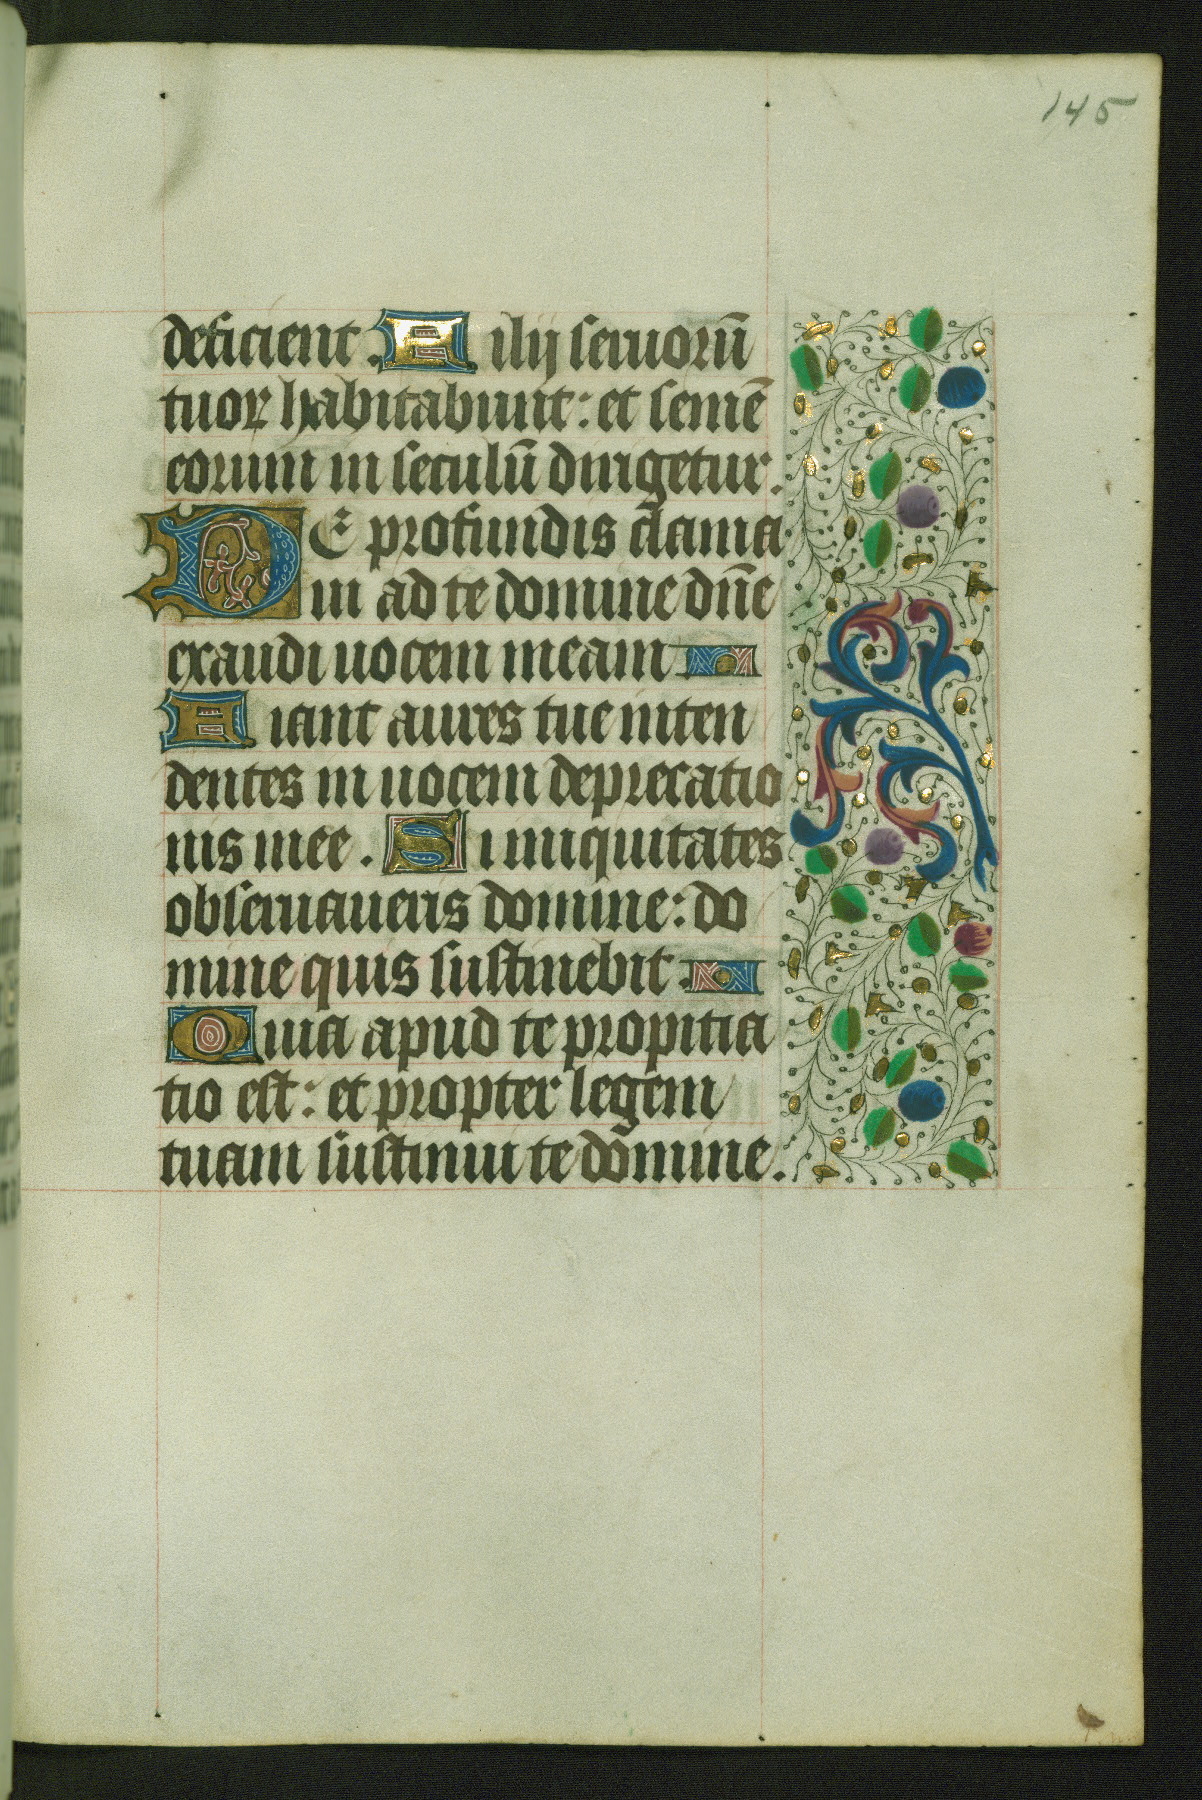 145
deficient. Filij seruorū
tuoꝝ habitabunt: et semē
eorum in seculū dirigetur.
DE profundis clama
ui ad te domine dn̄e
exaudi uocem meam
Fiant aures tue inten
dentes in uocem deprecatio
nis mee. Si iniquitates
obseruaueris domine: do
mine quis sustinebit
Quia apud te propitia
tio est: et propter legem
tuam sustinui te domine.